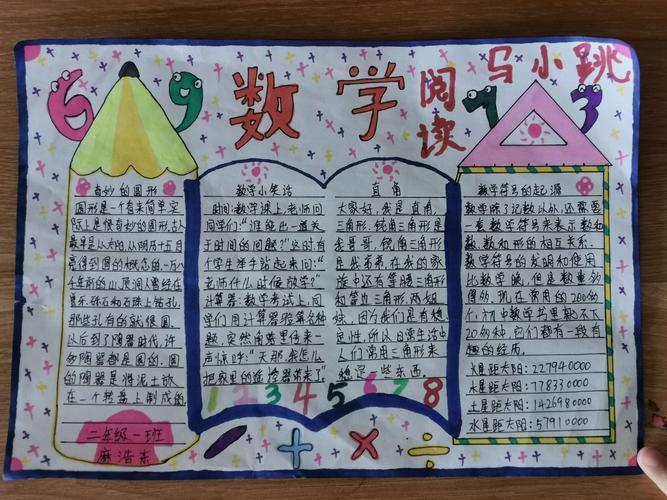 数学
阅读
马小跳
6
9
7
3
奇妙的圆形
圆形是一个看来简单实
际上是很奇妙的图形,古人
最早是从太阳,从阴历十五月
亮得到圆的概念的.一万八
千年前的山顶洞人曾经在
兽牙.砾石和石珠上钻孔,
那些孔有的就很圆.
以后到了陶器时代,许
多陶器都是圆的.圆
的陶器是将泥土放
在一个转盘上制成的.
二年级一班
麻浩东
数学小笑话
时间:数学课上,老师问
同学们:“谁能出一道关
于时间的问题?”这时,有
个学生举手站起来问:“
老师什么时候放学?”
计算器:数学考试上,同
学们用计算器验算各种
题.突然南省里传来一
声惊呼:“天那,我怎么
把家里的遥控器带来了”
直角
大家好,我是直角,
三角形.锐角三角形是
我哥哥.钝角三角形
是我弟弟,在我的家
族中还有等腰三角形
和等边三角形两姐
妹,因为我们具有稳
定性,所以日常生活中
人们常用三角形来
稳定一些东西.
1 2 3 4 5 6 7 8
数学符号的起源
数学除了记数以外,还需要
一套数学符号来表示数和
数,数和形的相互关系.
数学符号的发明和使用
比数字晚,但是数量多
得多.现在常用的200多
个,初中数学书里就不下
20多种.它们都有一段有
趣的经历.
火星距太阳:227940000
木星距太阳:77833 0000
土星距太阳:1426980000
水星距太阳:57910000
- + × ÷